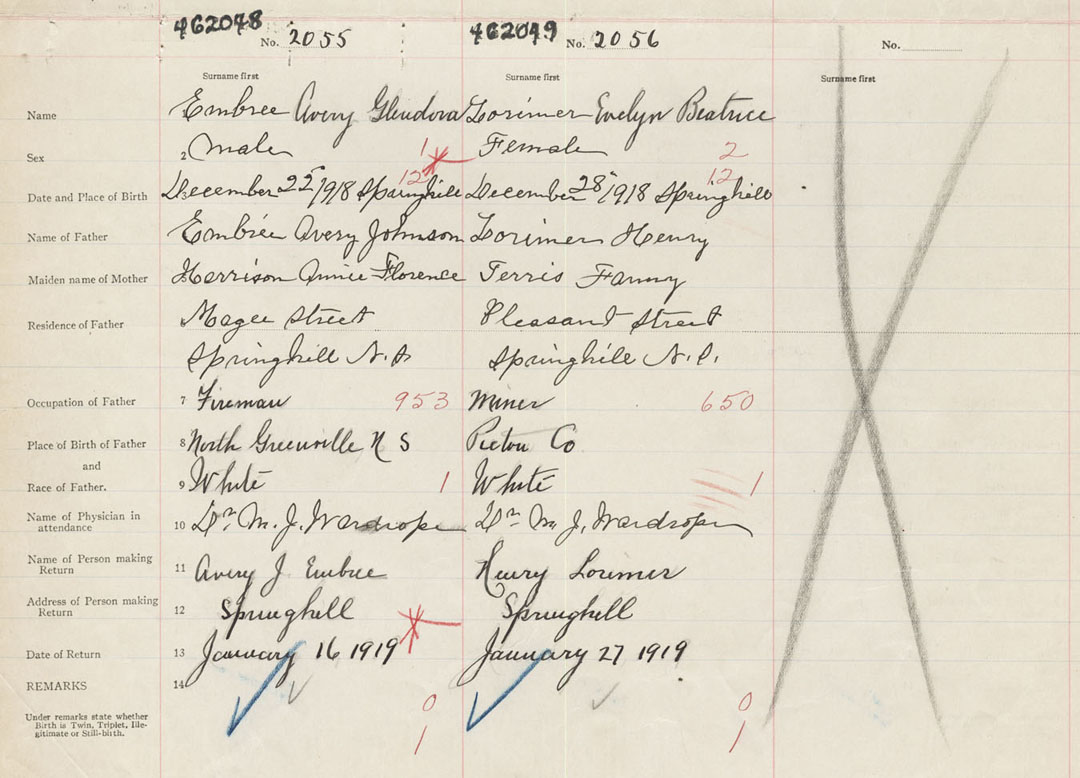 462048 No. 2055 462049 No. 2056 No.
Surname first Surname first Surname first
Name Embree Avery Glendora Lorimer Evelyn Beatrice
Sex 2 Male 1 Female 2
12 12
Date and Place of Birth December 22 1918 Springhill December 28 1918 Springhill
Name of Father Embree Avery Johnson Lorimer Henry
Maiden name of Mother Harrison Annie Florence Terris Fanny
Residence of Father Magee Street Pleasant Street
Springhill N.S Springhill N.S.
Occupation of Father 7 Fireman 953 Miner 650
Place of Birth of Father 8 North Greenville N S Pictou Co
and
Race of Father. 9 White 1 White 1
Name of Physician in
attendance 10 Dr M. J. Wardrope Dr M. J. Wardrope
Name of Person making
Return 11 Avery J Embree Henry Lorimer
Address of Person making
Return 12 Springhill Springhill
Date of Return 13 January 16 1919 January 27 1919
REMARKS 14
0 0
Under remarks state whether
Birth is Twin, Triplet, Ille-
gitimate or Still-birth.
1 1